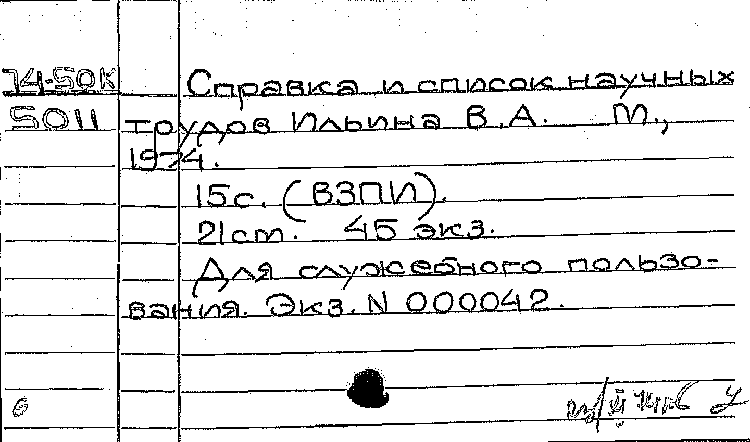 74-50К Справка и список научных
5011 трудов Ильина В.А. М.,
1974.
15с. (ВЗПИ).
21см. 45 экз.
Для служебного пользо-
вания. Экз. N 000042.